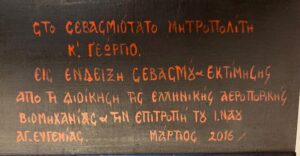 ϚΤΟ ϚΕΒΑϚΜΙΟΤΑΤΟ ΜΗΤΡΟΠΟΛΙΤΗ
Κ΄. ΓΕΩΡΓΙΟ,
ΕΙϚ ΕΝΔΕΙΞΗ ϚΕΒΑϚΜΟΥ & ΕΚΤΙΜΗϚΗϚ
ΑΠΟ ΤΗ ΔΙΟΙΚΗϚΗ ΤΗϚ ΕΛΛΗΝΙΚΗϚ ΑΕΡΟΠΟΡΙΚΗϚ
ΒΙΟΜΗΧΑΝΙΑϚ & ΤΗΝ ΕΠΙΤΡΟΠΗ ΤΟΥ Ι.ΝΑΟΥ
ΑΓ. ΕΥΓΕΝΙΑϚ. ΜΑΡΤΙΟϚ 2016